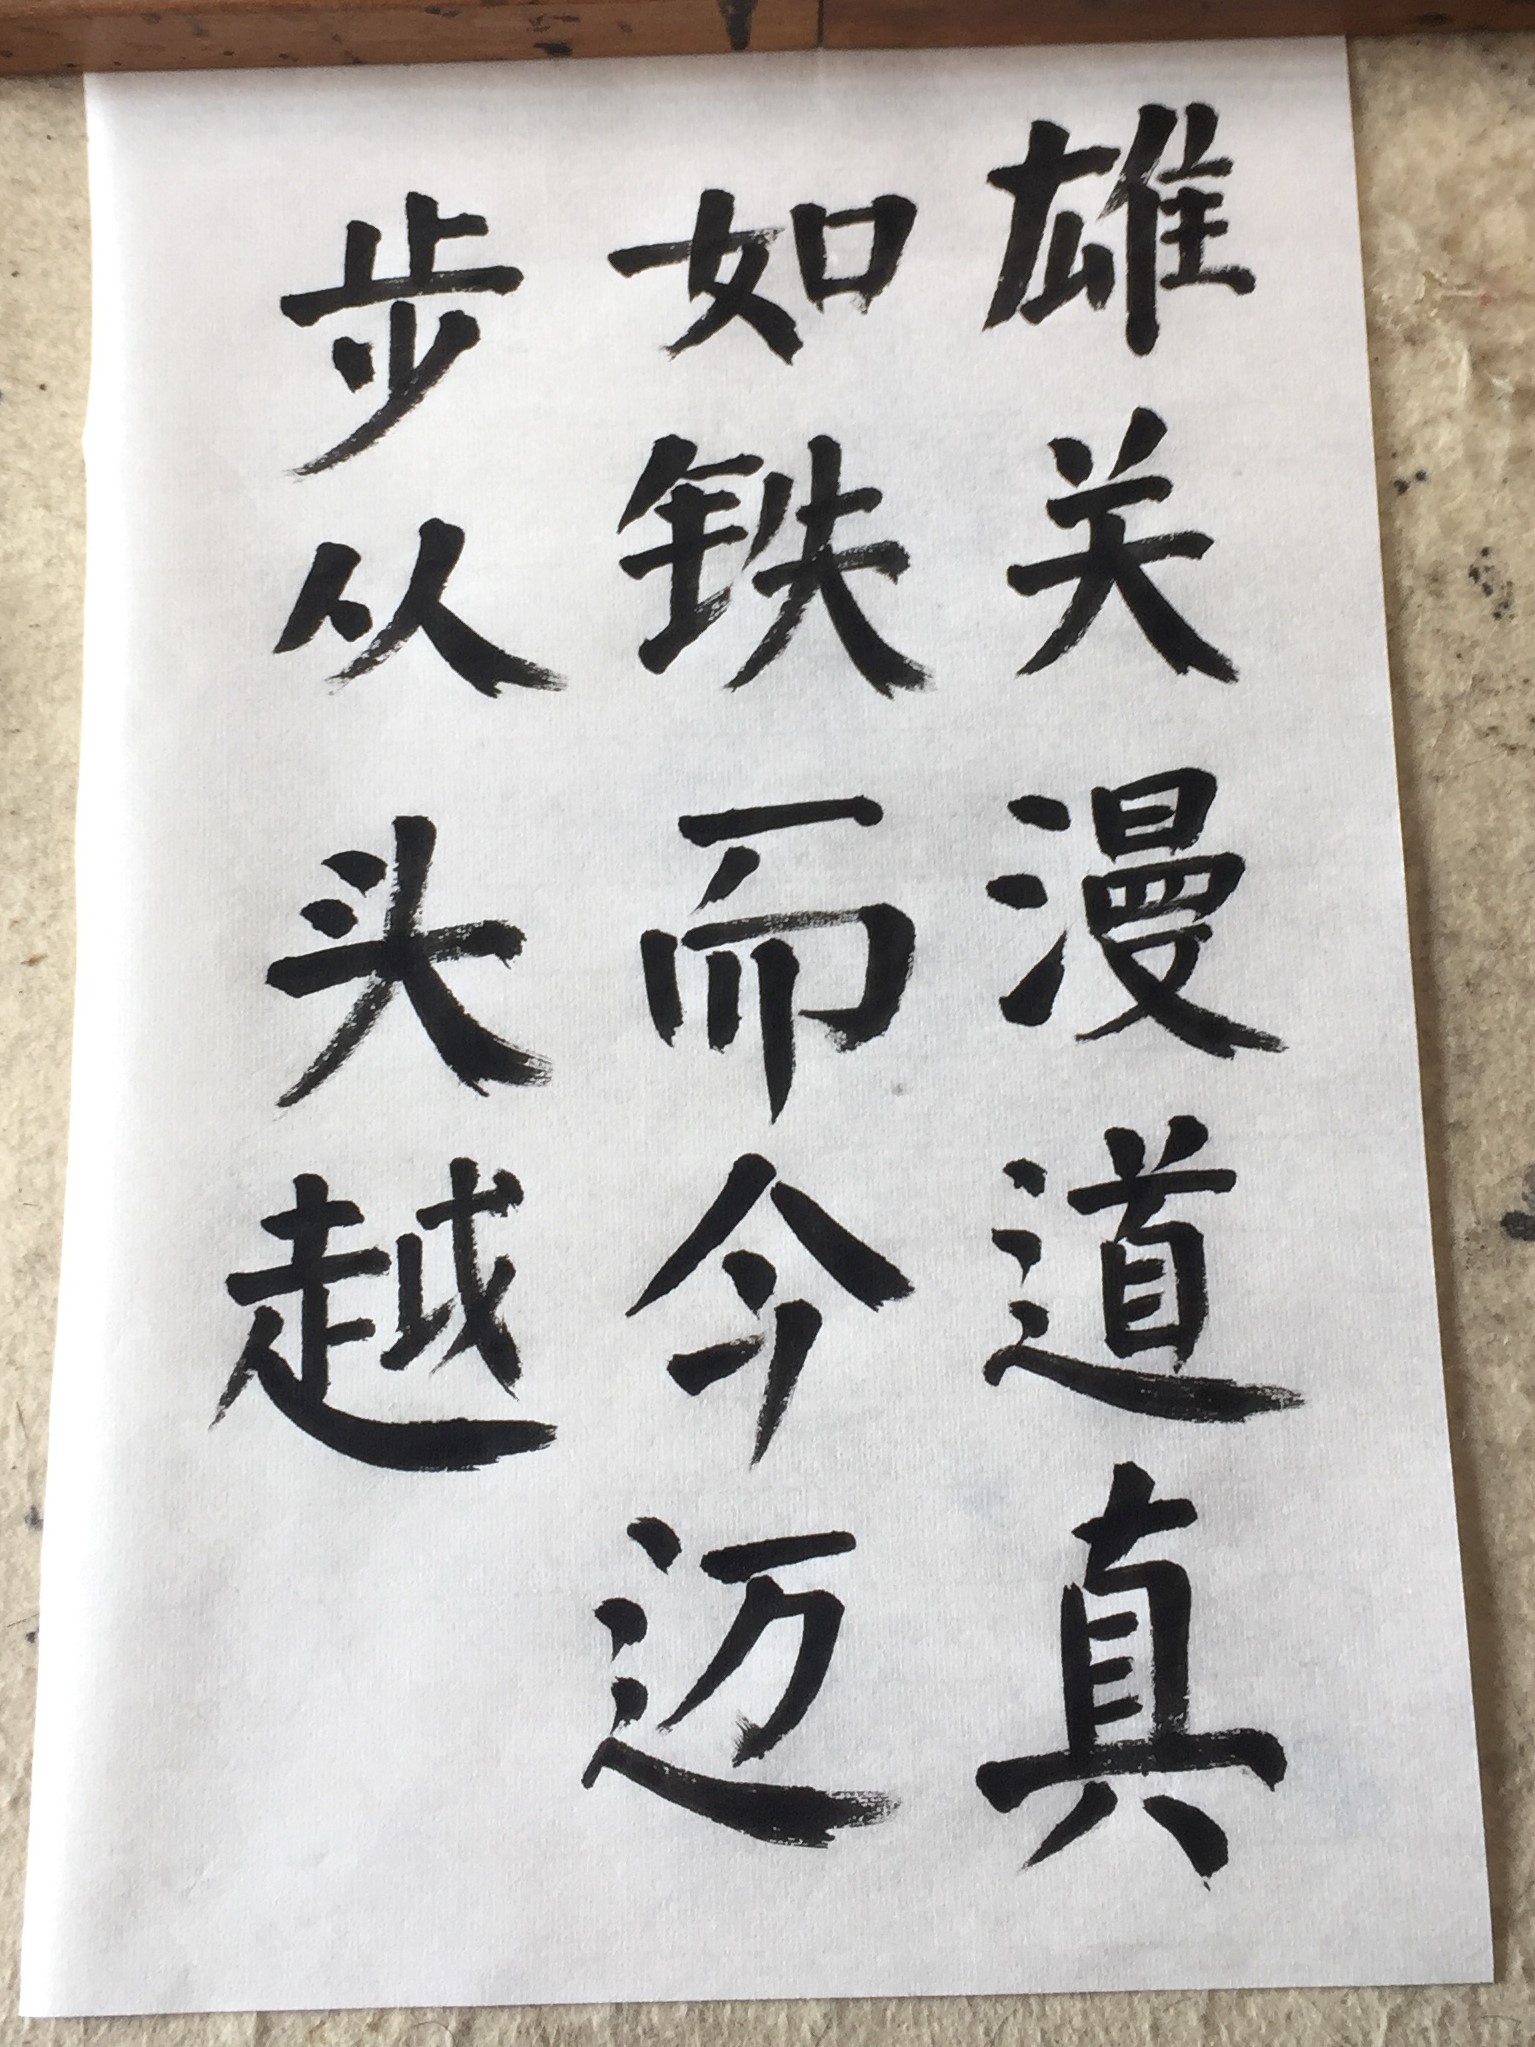 雄关漫道真
如铁而今迈
步从头越